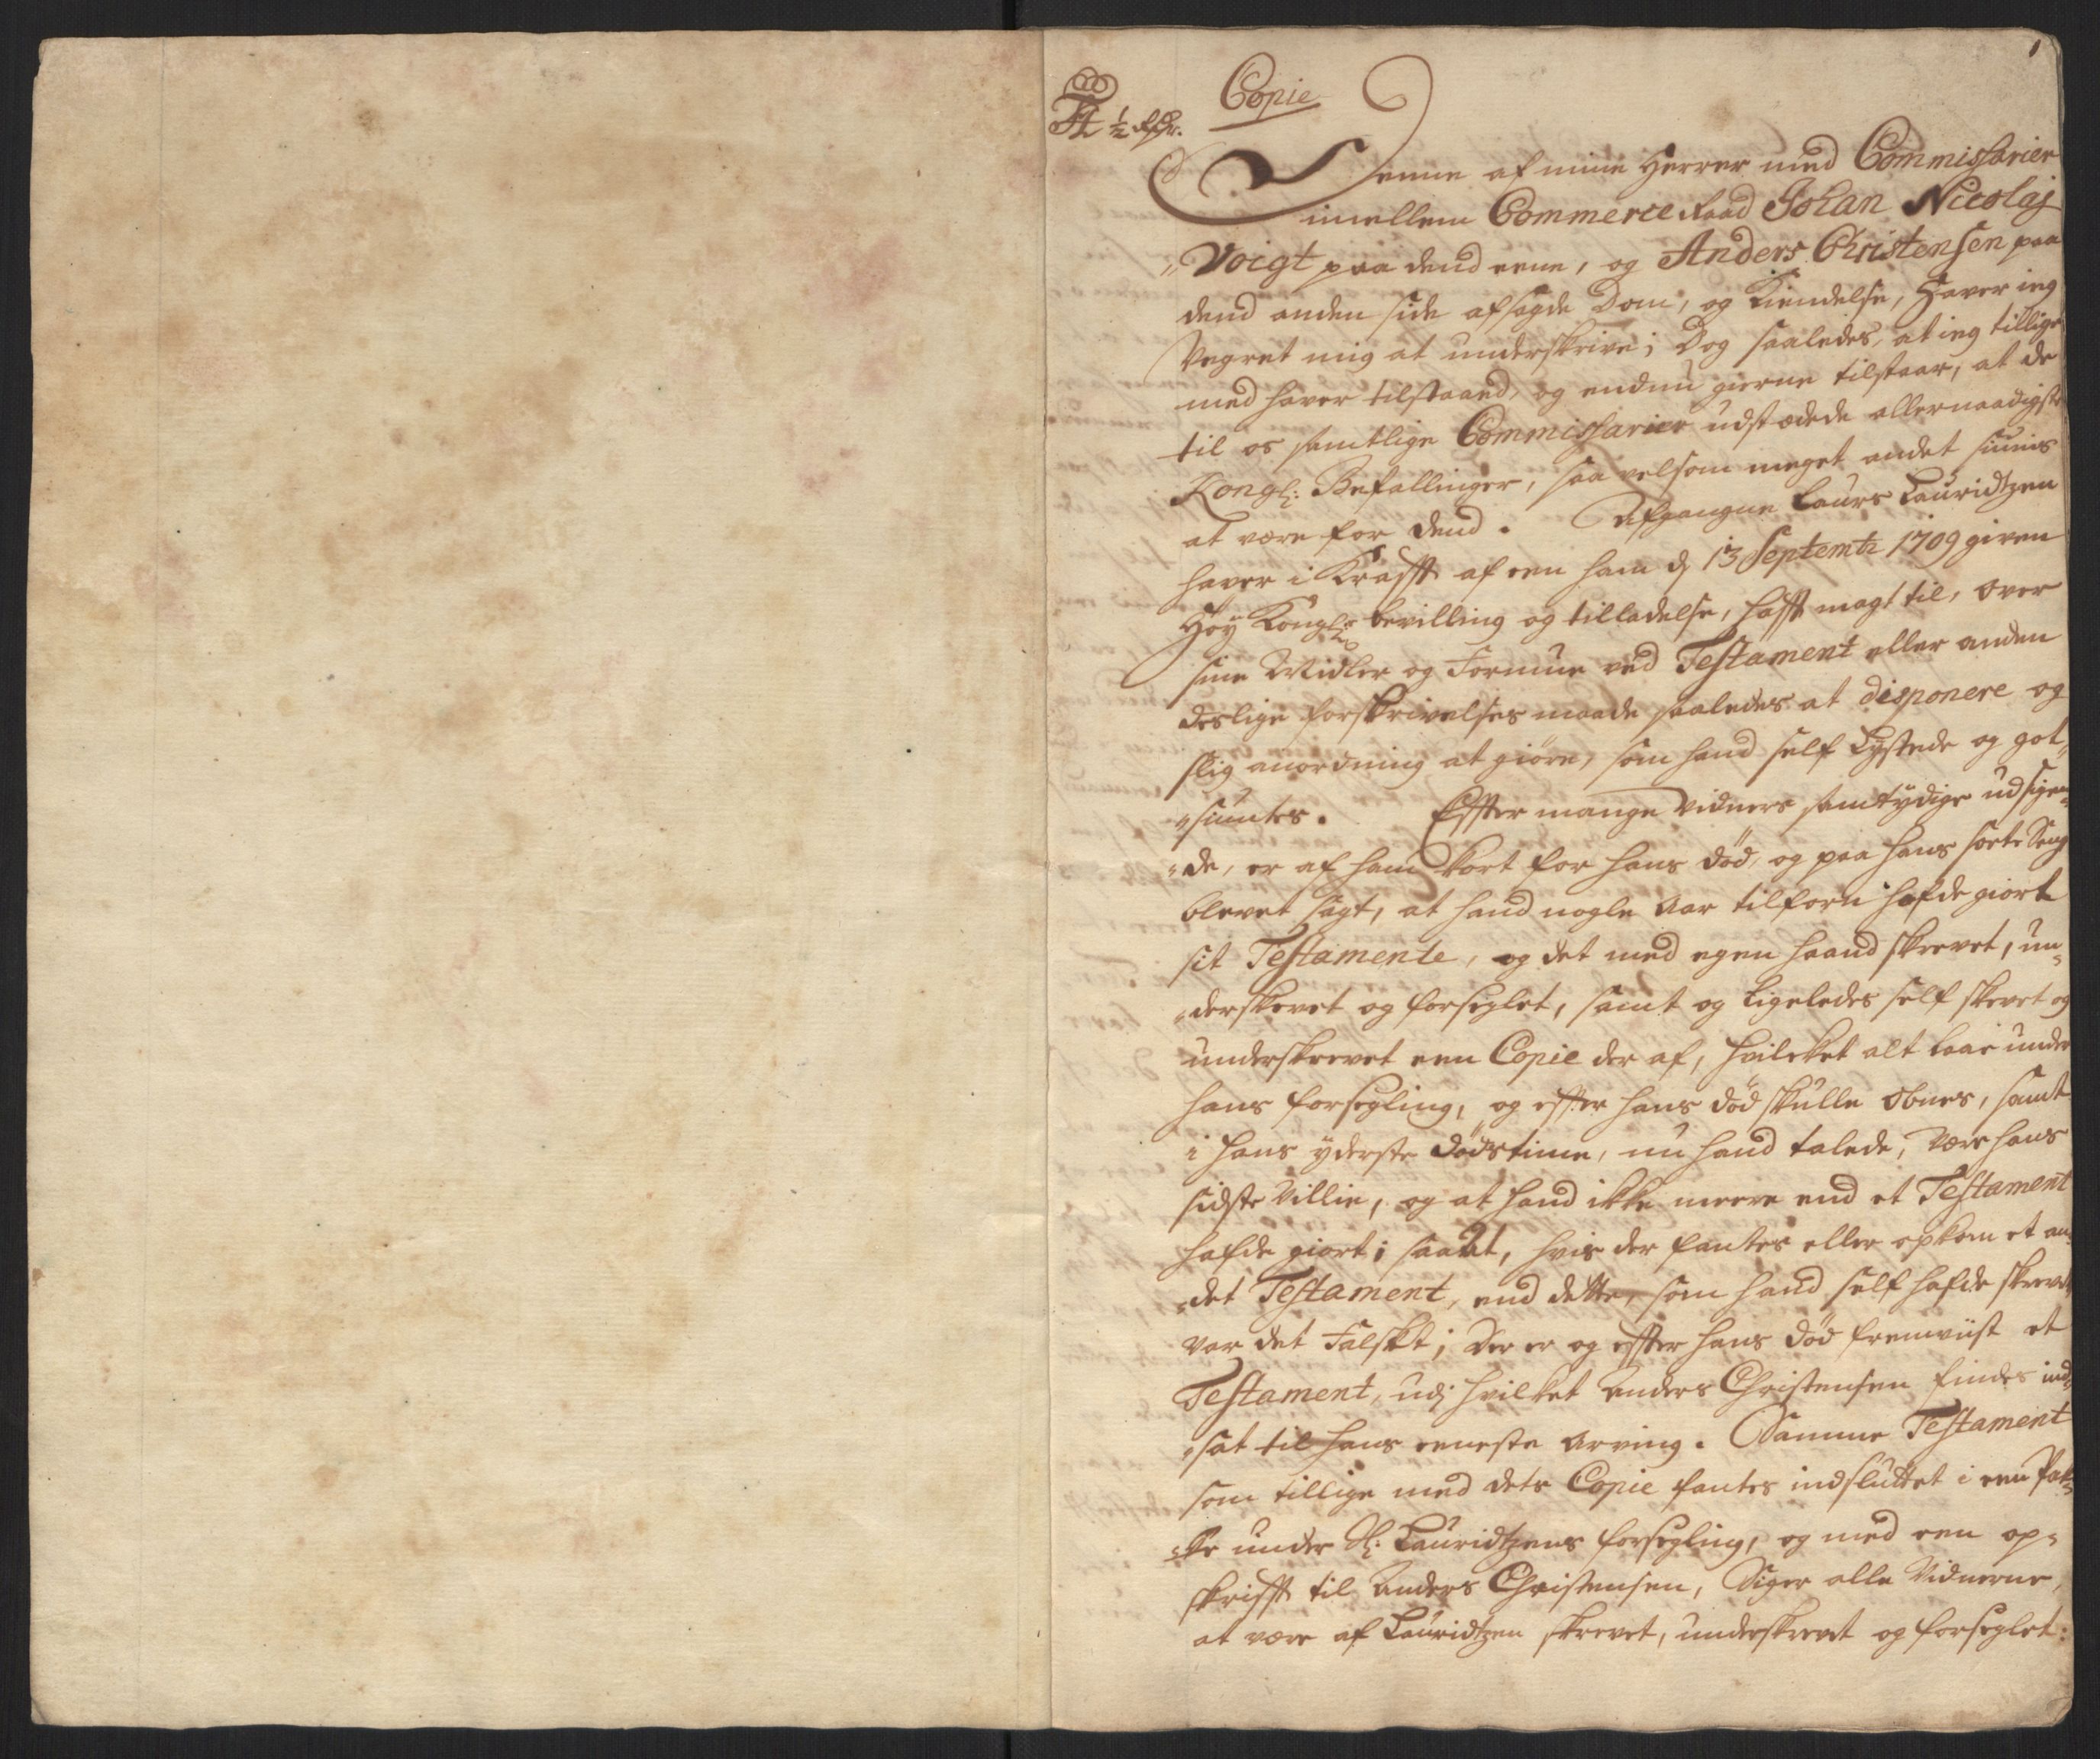 1
Copie
½ Rdr.
Denne af mine Herrer med Commissarier
imellem Commerce Raad Johan Nicolaj
Voigt paa dend eene, og Anders Christensen paa
dend anden side afsagde Dom, og Kiendelse, haver ieg
Vegret mig at underskrive; Dog saaledes, at ieg tillige
med haver tilstaaed, og endnu gierne tilstaar, at de
til os samtlige Commissarier udstædede allernaadigste
Kongl: Befallinger, saa velsom meget andet siunis
at være for dend. Afgangne Laurs Lauridtzen
haver i Krafft af een ham d 13 Septembr 1709 given
Høy Kongl: bevilling og tilladelse, hafft magt til, over
sine Midler og Formue ved Testament eller anden
deslige forskrivelses maade saaledes at disponere og
slig anordning at giøre, som hand self Lystede og got„
„siuntes. Effter mange Vidners samtydige udsigen„
„de, er af ham kort for hans død, og paa hans sotte Seng
blevet sagt, at hand nogle Aar tilforn hafde giort
sit Testamente, og det med egen haand skrevet, un„
„derskrevet og forseglet, samt og Ligeledes self skrevet og
underskrevet een Copie der af, hvilcket alt laae under
hans forsegling, og effter hans død skulle obnes, samt
i hans yderste dødstime, nu hand talede, være hans
sidste Villie, og at hand ikke meere end et Testament
hafde giort; saa at, hvis der fantes eller opkom et an„
„det Testament, end dette, som hand self hafde skrevet
var det Falskt; Der er og effter hans død fremviist et
Testament, udj hvilket Anders Christensen findes ind„
„sat til hans eeneste Arving. Samme Testament
som tillige med dets Copie fantes indsluttet i een Pak„
„ke under Sl: Lauridtzens forsegling, og med een op„
skrifft til Anders Christensen, Siger alle Vidnerne,
at være af Lauridtzen skrevet, underskrevet og forseglet: